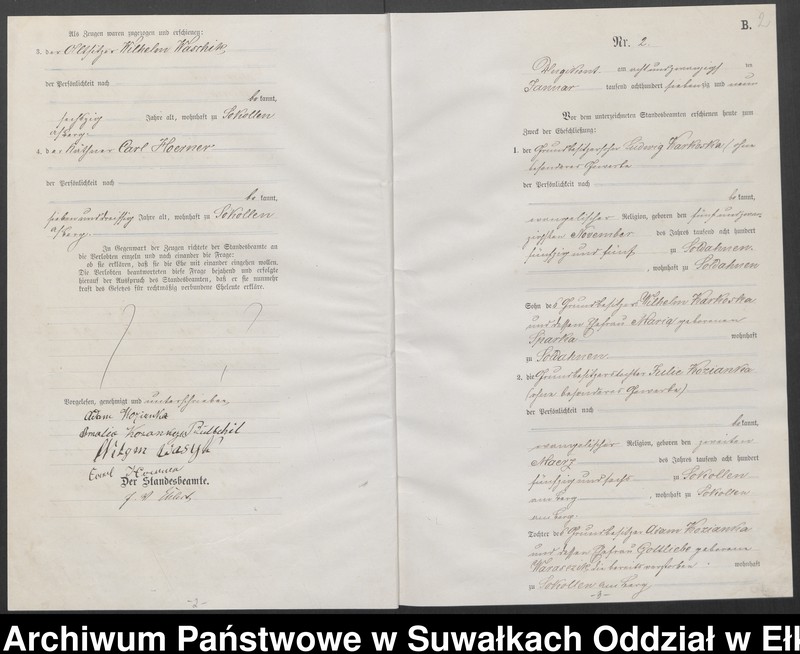 Als Zeugen waren zugezogen und erschienen:
3. der Altsitzer Wilhelm Waschik,
der Persönlichkeit nach
be kannt,
sechszig Jahre alt, wohnhaft zu Sokollen
a/Berg.
4. der Käthner Carl Hoesner
der Persönlichkeit nach
be kannt,
siebenunddreissig Jahre alt, wohnhaft zu Sokollen
a/Berg.
In Gegenwart der Zeugen richtete der Standesbeamte an
die Verlobten einzeln und nach einander die Frage:
ob sie erklären, daß sie die Ehe mit einander eingehen wollen.
Die Verlobten beantworteten diese Frage bejahend und erfolgte
hierauf der Ausspruch des Standesbeamten, daß er sie nunmehr
kraft des Gesetzes für rechtmäßig verbundene Eheleute erkläre.
Vorgelesen, genehmigt und unterschrieben
Adam Kozianka
Amalie
Carl
Der Standesbeamte.
-2-
B. 2
Nr. 2.
am achtundzwanzigsten
Januar tausend achthundert siebenzig und neun
Vor dem unterzeichneten Standesbeamten erschienen heute zum
Zweck der Eheschließung:
1. der Grundbesitzersohn Ludwig Karkoska (ohne
besonderes Gewerbe
der Persönlichkeit nach
be kannt,
evangelischer Religion, geboren den fünfundzwan-
zigsten November des Jahres tausend acht hundert
fünfzig und fünf zu Soldahnen
, wohnhaft zu Soldahnen
Sohn des Grundbesitzer Wilhelm Karkoska
und dessen Ehefrau Marie geborenen
Sparka wohnhaft
zu Soldahnen
2. die Grundbesitzerstochter Julie Kozianka
(ohne besonderes Gewerbe)
der Persönlichkeit nach
be kannt,
evangelischer Religion, geboren den zweiten
Maerz des Jahres tausend acht hundert
fünfzig und sechs zu Sokollen
am Berg , wohnhaft zu Sokollen
am Berg.
Tochter des Grundbesitzer Adam Kozianka
und dessen Ehefrau Gottliebe geborene
die bereits verstorben wohnhaft
zu Sokollen am Berg
-3-
Archiwum Państwowe w Suwałkach Oddział w Ełk